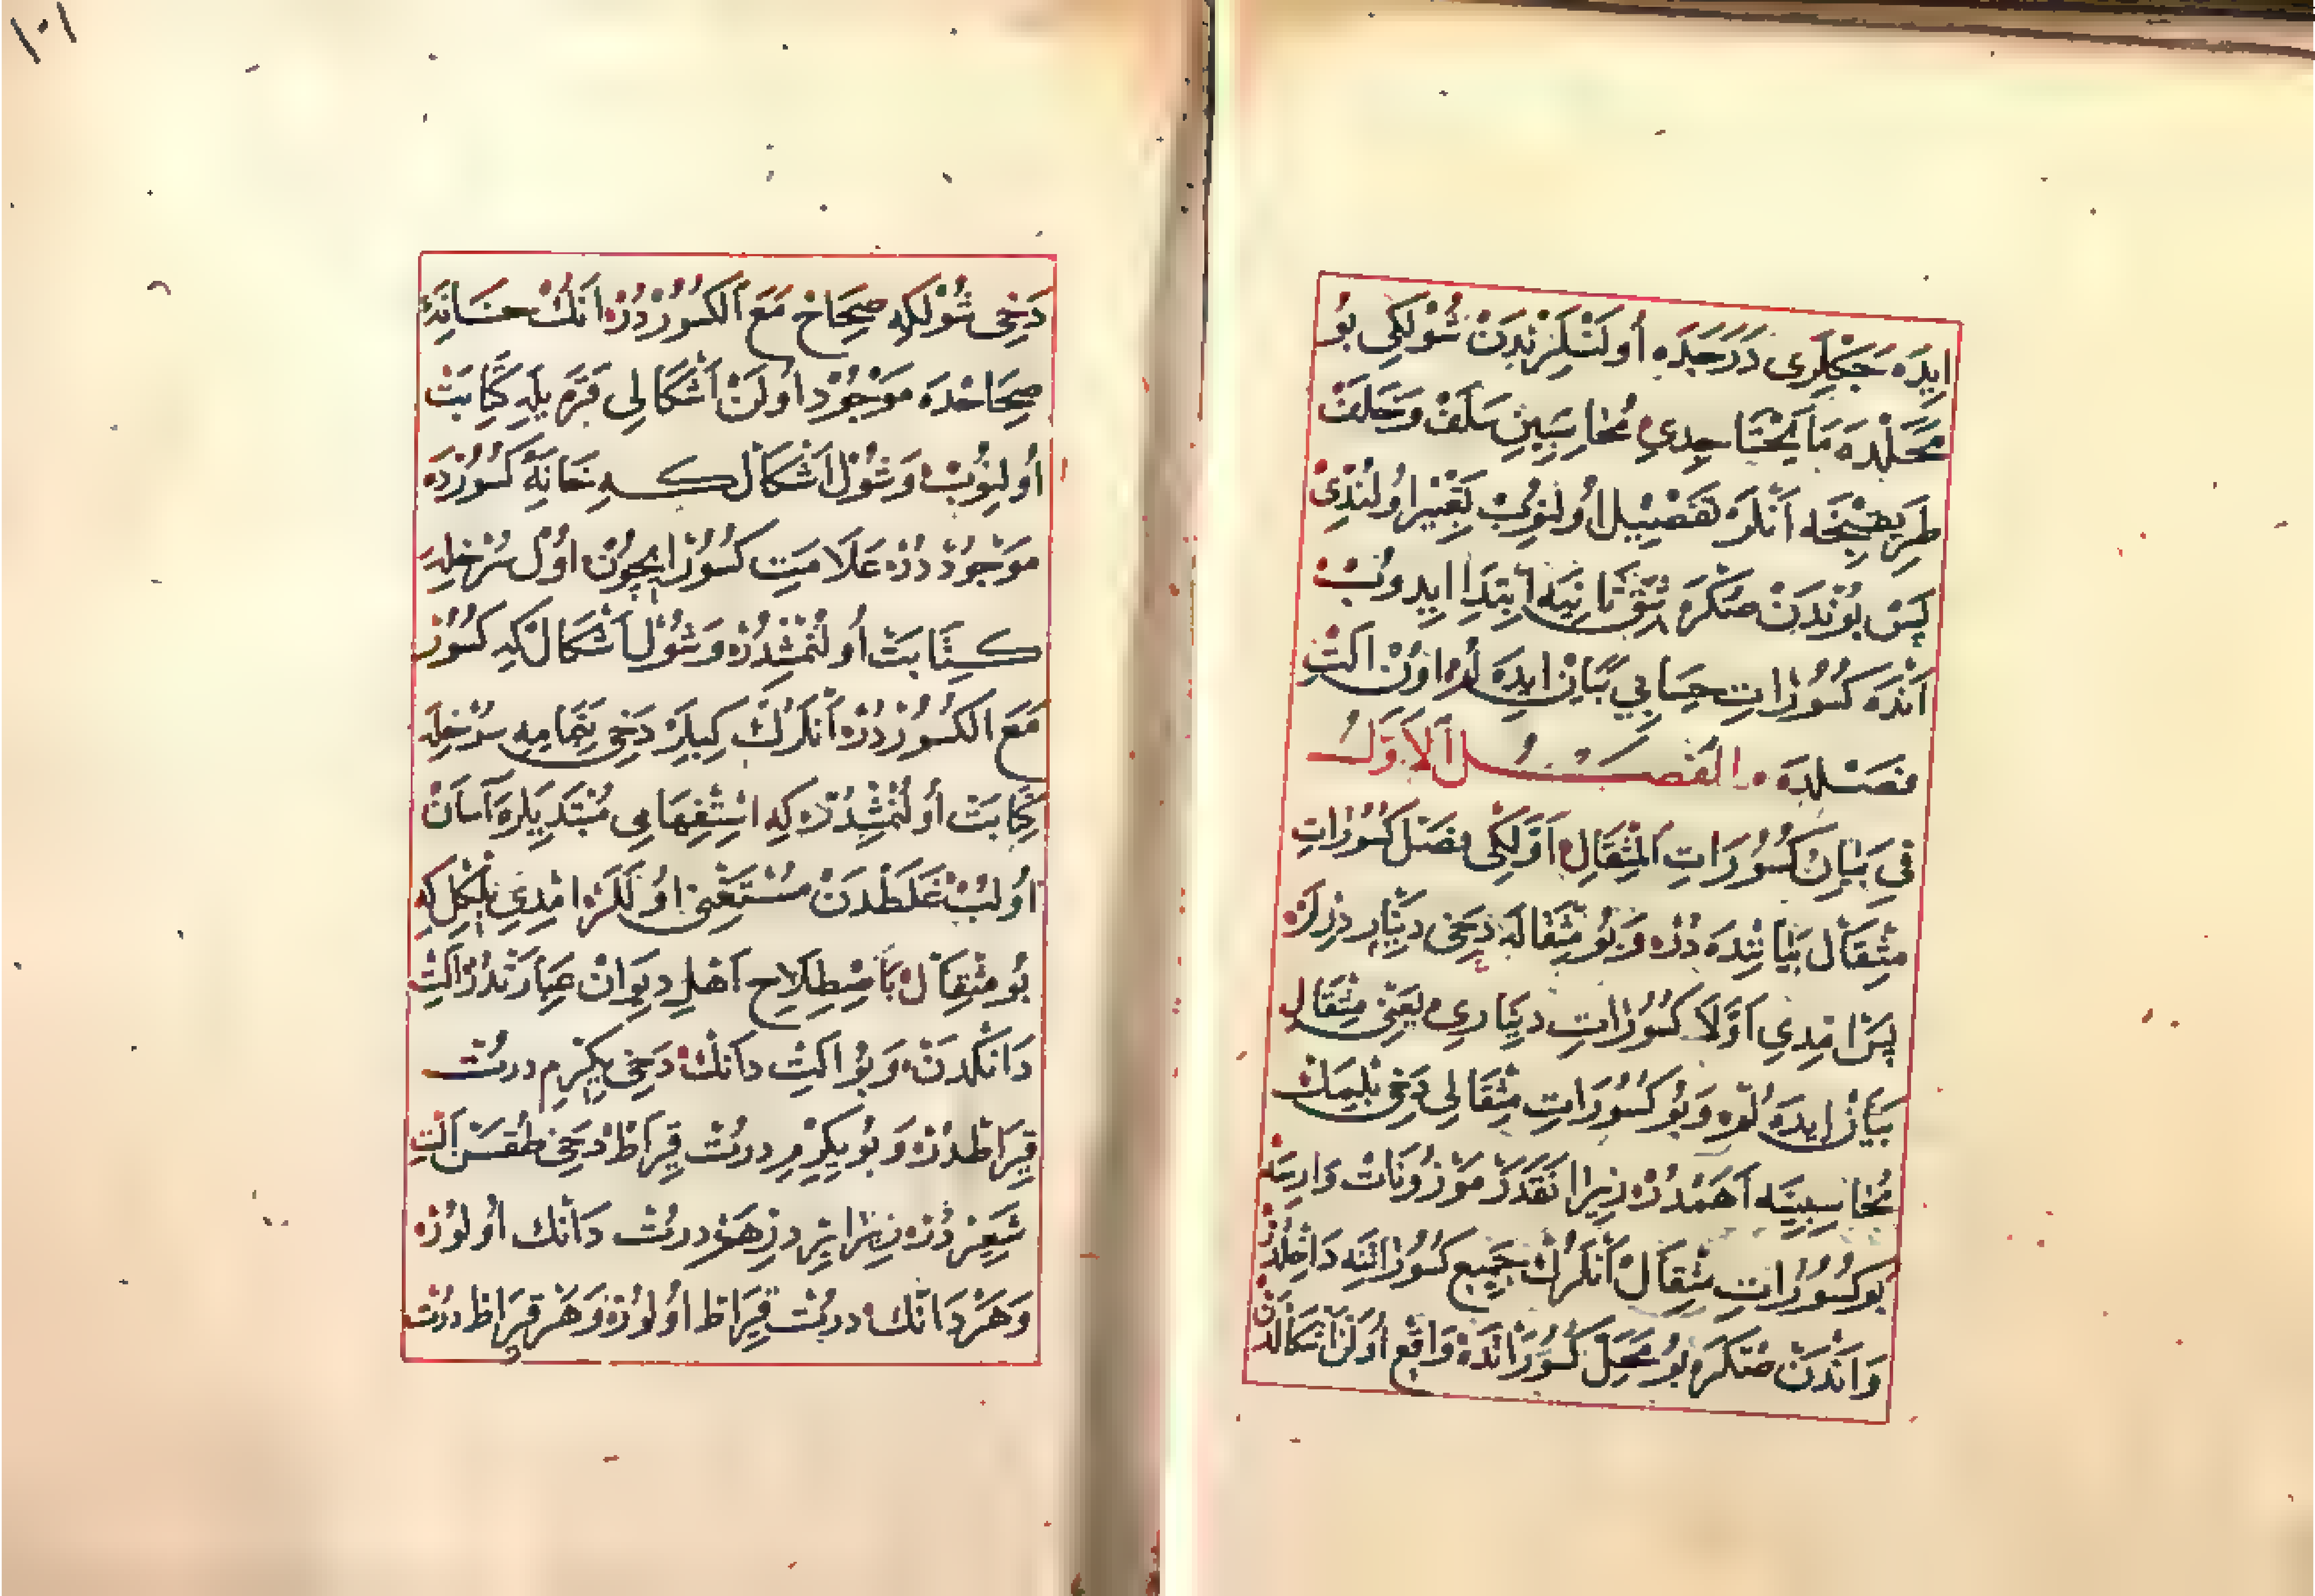 ایده جکلری درجده اولنشلزندن شولکی بو
محلده ما یحتاجدی محاسبین سلف وخلف
طریقنجه انلره تفصیل اولنوب تغییر اولندی
پس بوندن صکره شق ثانیه ابتدا ایدوب
انده کسورات حسابی بیان ایده لوم اون الت
فصلده الفصل الاول
فی بیان کسورات المثقال اولکی فصل کسورات
مثقال بیاننده دز و بو مثقاله دخی دینار دزلر
پس امدی اولا کسورات دیناری یعنی مثقال
بیان ایده لوم و بو کسورات مثقالی دخی بلمک
محاسبینه اهمدر زیرا نقدر موزونات وارسه
بو کسورات مثقال انلرك جمیع کسوراتنه داخلدر
واندن صکره بو محل کسوراتده واقع اولن اشکالدن
دخی شولکه صحاح مع الکسور در انك خانه
صحاحده موجود اولن اشکالی قره یله کتابت
اولنوب وشول اشکال که خانه کسورده
موجود در علامت کسور ایچون اول سرخله
کتابت اولنمشدر وشول اشکال که کسور
مع الکسور در انلرك کبیلر دخی بتمامه سرخله
کتابت اولنمشدر که استفهامی مبتدیلره آسان
اولب غلطدن مستغنی اوللر امدی بلکل که
بو مثقال باصطلاح اهل دیوان عبارتدر الت
دانکدن و بو الت دانك دخی یکرم درت
قیراطدر و بو یکرم درت قیراط دخی طقسن الت
شعیر در زیرا بر درهم درت دانك اولور
وهر دانك درت قیراط اولور وهر قیراط درت
١٠١